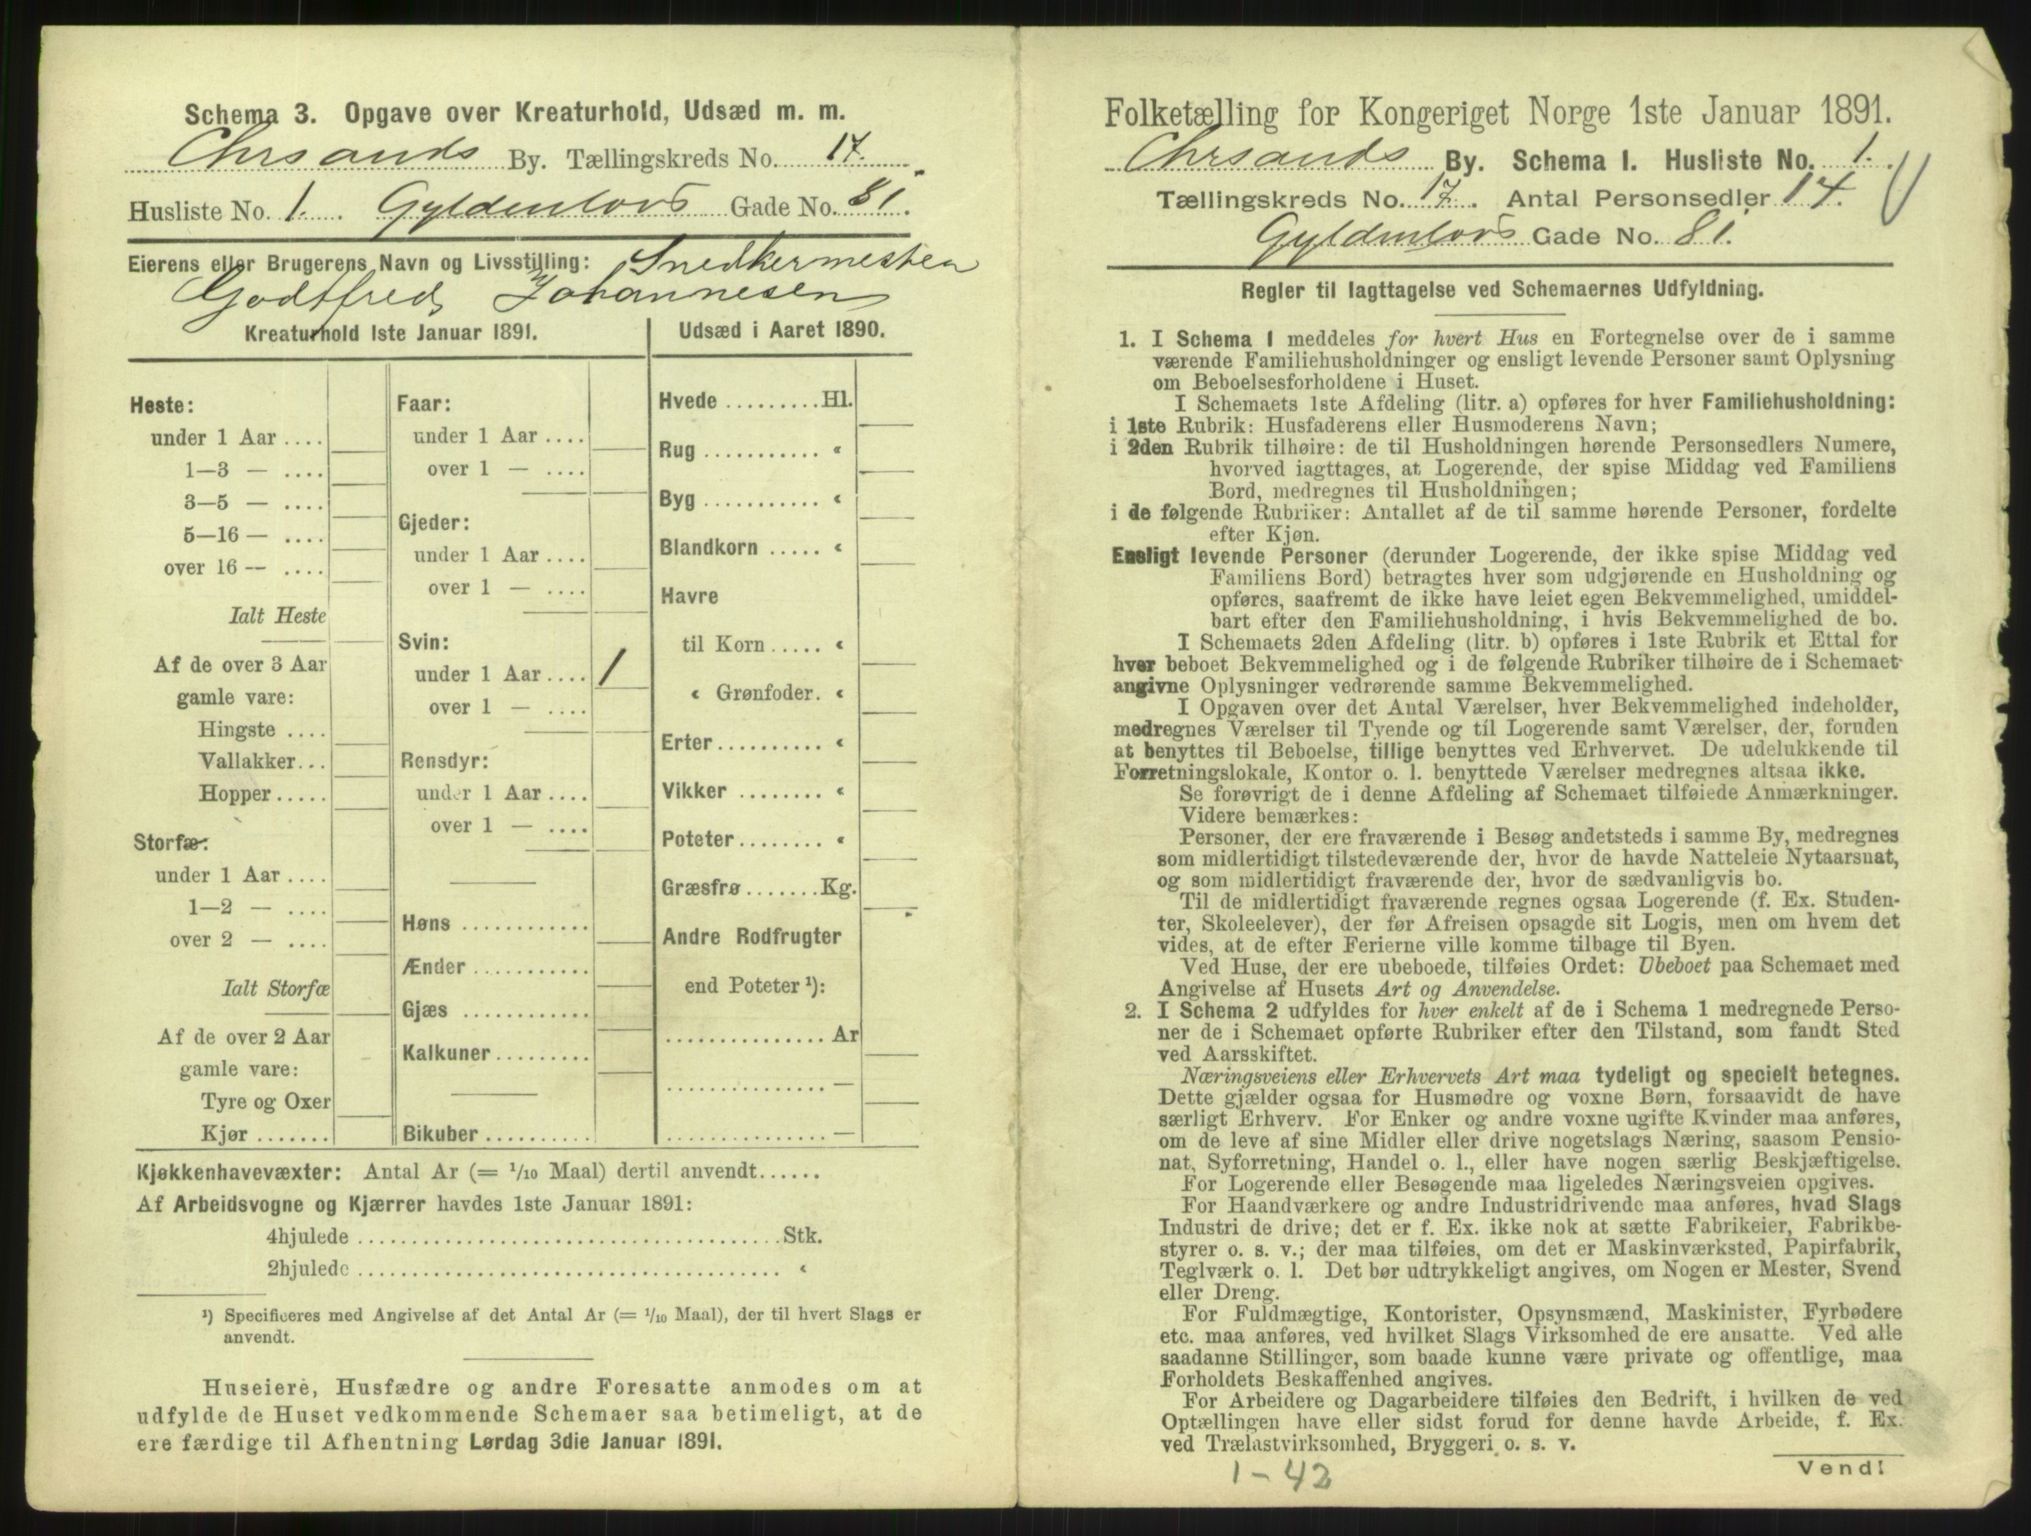 Schema 3. Opgave over Kreaturhold, Udsæd m. m.
Chrsands By. Tællingskreds No. 17.
Husliste No. 1. Gyldenlovs Gade No. 81.
Eierens eller Brugerens Navn og Livsstilling: Snedkermester
Godtfred Johannesen
Kreaturhold 1ste Januar 1891.
Heste:
under 1 Aar ....
1—3 — ....
3—5 — ....
5—16 — ....
over 16 — ....
Ialt Heste
Af de over 3 Aar
gamle vare:
Hingste ....
Vallakker...
Hopper.....
Storfæ:
under 1 Aar ....
1—2 — ....
over 2 — ....
Ialt Storfæ
Af de over 2 Aar
gamle vare:
Tyre og Oxer
Kjør .......
Faar:
under 1 Aar ....
over 1 — ....
Gjeder:
under 1 Aar ....
over 1 — ....
Svin:
under 1 Aar .... 1
over 1 — ....
Rensdyr:
under 1 Aar ....
over 1 — ....
Høns ............
Ænder ...........
Gjæs ............
Kalkuner.........
Bikuber ..........
Udsæd i Aaret 1890.
Hvede .........Hl.
Rug ........... «
Byg ........... «
Blandkorn ..... «
Havre
til Korn ..... «
« Grønfoder. «
Erter.......... «
Vikker ........ «
Poteter........ «
Græsfrø .......Kg.
Andre Rodfrugter
end Poteter ¹):
............... Ar
............... —
............... —
Kjøkkenhavevæxter: Antal Ar (= 1/10 Maal) dertil anvendt......
Af Arbeidsvogne og Kjærrer havdes 1ste Januar 1891:
4hjulede .......................................Stk.
2hjulede ....................................... «
¹) Specificeres med Angivelse af det Antal Ar (= 1/10 Maal), der til hvert Slags er
anvendt.
Huseiere, Husfædre og andre Foresatte anmodes om at
udfylde de Huset vedkommende Schemaer saa betimeligt, at de
ere færdige til Afhentning Lørdag 3die Januar 1891.
Folketælling for Kongeriget Norge 1ste Januar 1891.
Chrsands By. Schema I. Husliste No. 1.
Tællingskreds No. 17. Antal Personsedler 14.
Gyldenlovs Gade No. 81.
Regler til Iagttagelse ved Schemaernes Udfyldning.
1. I Schema 1 meddeles for hvert Hus en Fortegnelse over de i samme
værende Familiehusholdninger og ensligt levende Personer samt Oplysning
om Beboelsesforholdene i Huset.
I Schemaets 1ste Afdeling (litr. a) opføres for hver Familiehusholdning:
i 1ste Rubrik: Husfaderens eller Husmoderens Navn;
i 2den Rubrik tilhøire: de til Husholdningen hørende Personsedlers Numere,
hvorved iagttages, at Logerende, der spise Middag ved Familiens
Bord, medregnes til Husholdningen;
i de følgende Rubriker: Antallet af de til samme hørende Personer, fordelte
efter Kjøn.
Ensligt levende Personer (derunder Logerende, der ikke spise Middag ved
Familiens Bord) betragtes hver som udgjørende en Husholdning og
opføres, saafremt de ikke have leiet egen Bekvemmelighed, umiddel-
bart efter den Familiehusholdning, i hvis Bekvemmelighed de bo.
I Schemaets 2den Afdeling (litr. b) opføres i 1ste Rubrik et Ettal for
hver beboet Bekvemmelighed og i de følgende Rubriker tilhøire de i Schemaet
angivne Oplysninger vedrørende samme Bekvemmelighed.
I Opgaven over det Antal Værelser, hver Bekvemmelighed indeholder,
medregnes Værelser til Tyende og til Logerende samt Værelser, der, foruden
at benyttes til Beboelse, tillige benyttes ved Erhvervet. De udelukkende til
Forretningslokale, Kontor o. l. benyttede Værelser medregnes altsaa ikke.
Se forøvrigt de i denne Afdeling af Schemaet tilføiede Anmærkninger.
Videre bemærkes:
Personer, der ere fraværende i Besøg andetsteds i samme By, medregnes
som midlertidigt tilstedeværende der, hvor de havde Natteleie Nytaarsnat,
og som midlertidigt fraværende der, hvor de sædvanligvis bo.
Til de midlertidigt fraværende regnes ogsaa Logerende (f. Ex. Studen-
ter, Skoleelever), der før Afreisen opsagde sit Logis, men om hvem det
vides, at de efter Ferierne ville komme tilbage til Byen.
Ved Huse, der ere ubeboede, tilføies Ordet: Ubeboet paa Schemaet med
Angivelse af Husets Art og Anvendelse.
2. I Schema 2 udfyldes for hver enkelt af de i Schema 1 medregnede Perso-
ner de i Schemaet opførte Rubriker efter den Tilstand, som fandt Sted
ved Aarsskiftet.
Næringsveiens eller Erhvervets Art maa tydeligt og specielt betegnes.
Dette gjælder ogsaa for Husmødre og voxne Børn, forsaavidt de have
særligt Erhverv. For Enker og andre voxne ugifte Kvinder maa anføres,
om de leve af sine Midler eller drive nogetslags Næring, saasom Pensio-
nat, Syforretning, Handel o. l., eller have nogen særlig Beskjæftigelse.
For Logerende eller Besøgende maa ligeledes Næringsveien opgives.
For Haandværkere og andre Industridrivende maa anføres, hvad Slags
Industri de drive; det er f. Ex. ikke nok at sætte Fabrikeier, Fabrikbe-
styrer o. s. v.; der maa tilføies, om det er Maskinværksted, Papirfabrik,
Teglværk o. l. Det bør udtrykkeligt angives, om Nogen er Mester, Svend
eller Dreng.
For Fuldmægtige, Kontorister, Opsynsmænd, Maskinister, Fyrbødere
etc. maa anføres, ved hvilket Slags Virksomhed de ere ansatte. Ved alle
saadanne Stillinger, som baade kunne være private og offentlige, maa
Forholdets Beskaffenhed angives.
For Arbeidere og Dagarbeidere tilføies den Bedrift, i hvilken de ved
Optællingen have eller sidst forud for denne havde Arbeide, f. Ex.
ved Trælastvirksomhed, Bryggeri o. s. v.
1-42
Vend!